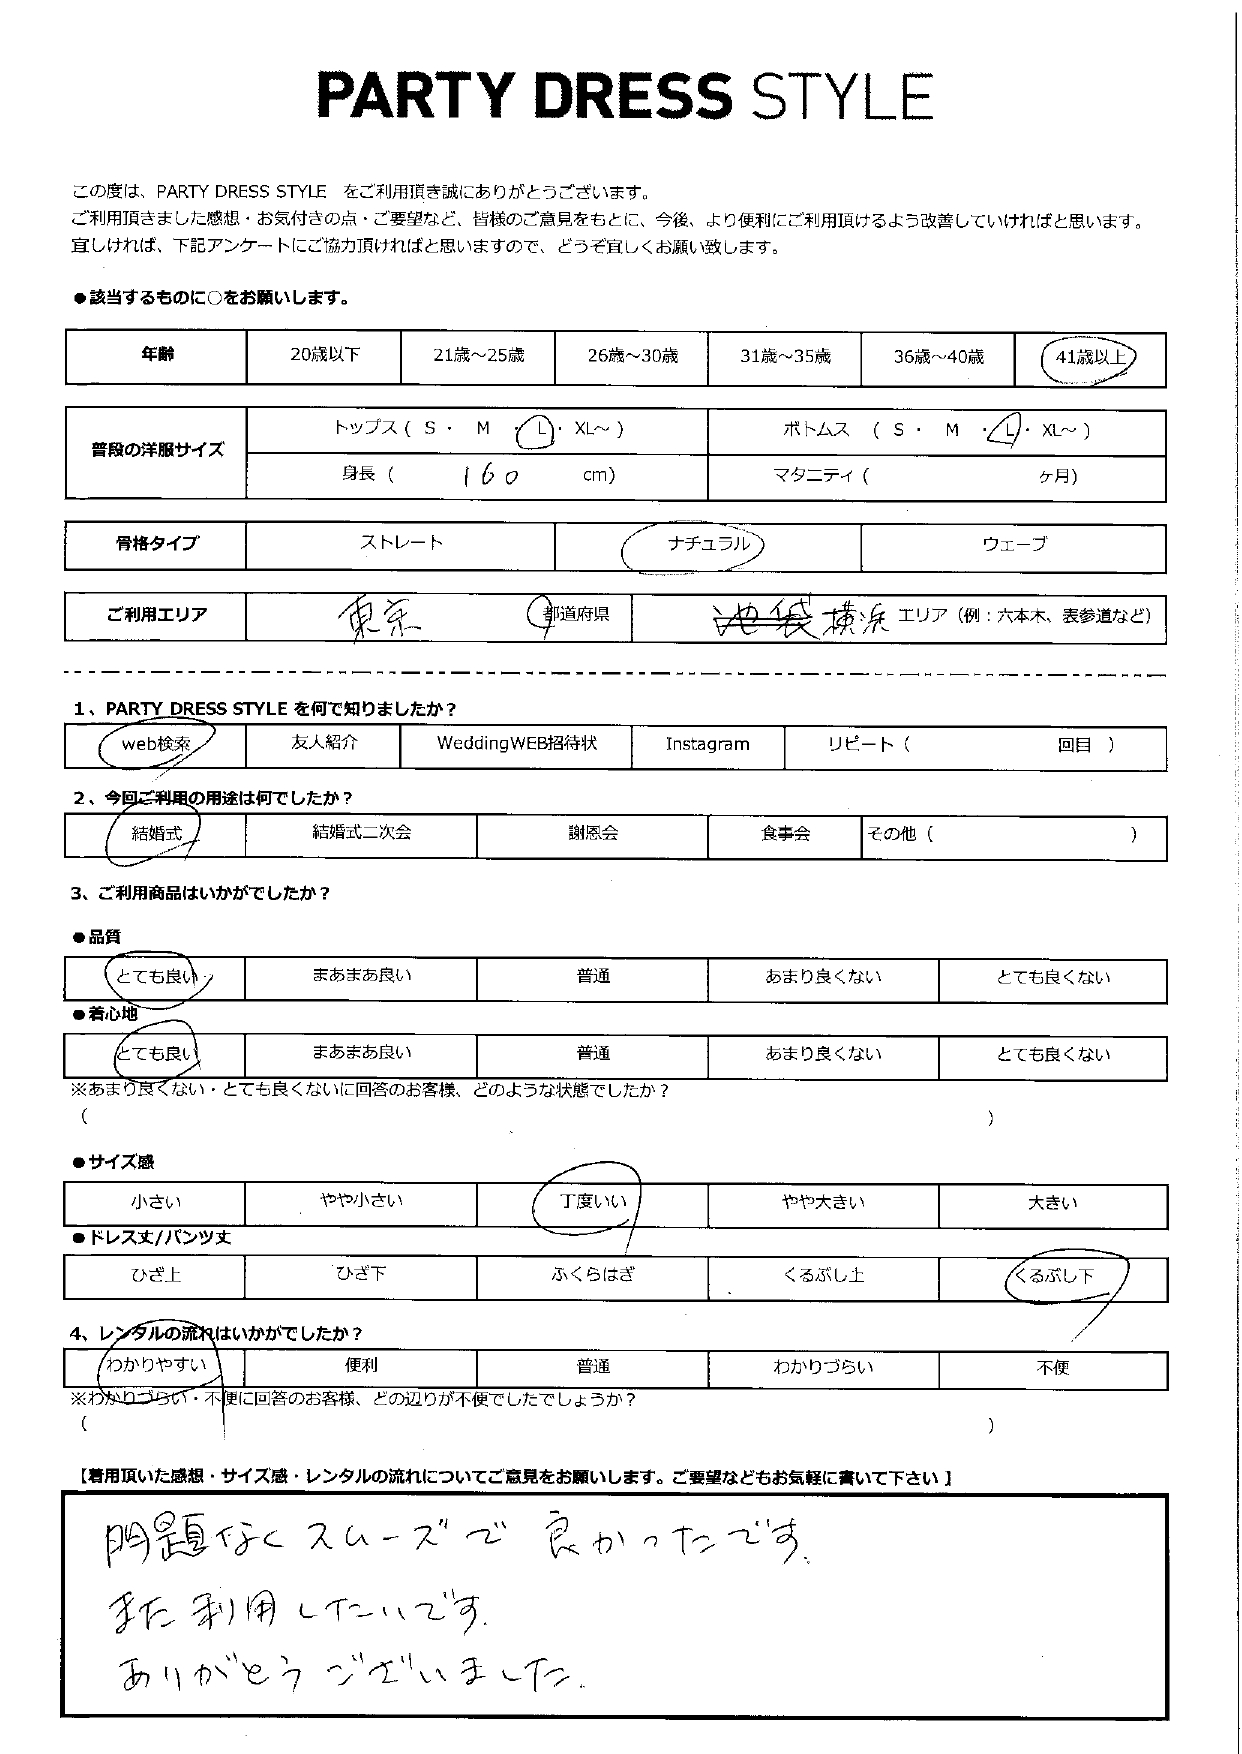 PARTY DRESS STYLE
この度は、PARTY DRESS STYLE をご利用頂き誠にありがとうございます。
ご利用頂きました感想・お気付きの点・ご要望など、皆様のご意見をもとに、今後、より便利にご利用頂けるよう改善していければと思います。
宜しければ、下記アンケートにご協力頂ければと思いますので、どうぞ宜しくお願い致します。
●該当するものに○をお願いします。
年齢 20歳以下 21歳～25歳 26歳～30歳 31歳～35歳 36歳～40歳 41歳以上
普段の洋服サイズ トップス ( S ・ M ・ L ・ XL～ ) ボトムス ( S ・ M ・ L ・ XL～ )
身長 ( 160 cm) マタニティ ( ヶ月)
骨格タイプ ストレート ナチュラル ウェーブ
ご利用エリア 東京 都道府県 池袋 横浜 エリア（例：六本木、表参道など）
1、PARTY DRESS STYLE を何で知りましたか？
web検索 友人紹介 WeddingWEB招待状 Instagram リピート ( 回目 )
2、今回ご利用の用途は何でしたか？
結婚式 結婚式二次会 謝恩会 食事会 その他 ( )
3、ご利用商品はいかがでしたか？
●品質
とても良い まあまあ良い 普通 あまり良くない とても良くない
●着心地
とても良い まあまあ良い 普通 あまり良くない とても良くない
※あまり良くない・とても良くないに回答のお客様、どのような状態でしたか？
( )
●サイズ感
小さい やや小さい 丁度いい やや大きい 大きい
●ドレス丈/パンツ丈
ひざ上 ひざ下 ふくらはぎ くるぶし上 くるぶし下
4、レンタルの流れはいかがでしたか？
わかりやすい 便利 普通 わかりづらい 不便
※わかりづらい・不便に回答のお客様、どの辺りが不便でしたでしょうか？
( )
【着用頂いた感想・サイズ感・レンタルの流れについてご意見をお願いします。ご要望などもお気軽に書いて下さい】
問題なくスムーズで良かったです。
また利用したいです。
ありがとうございました。